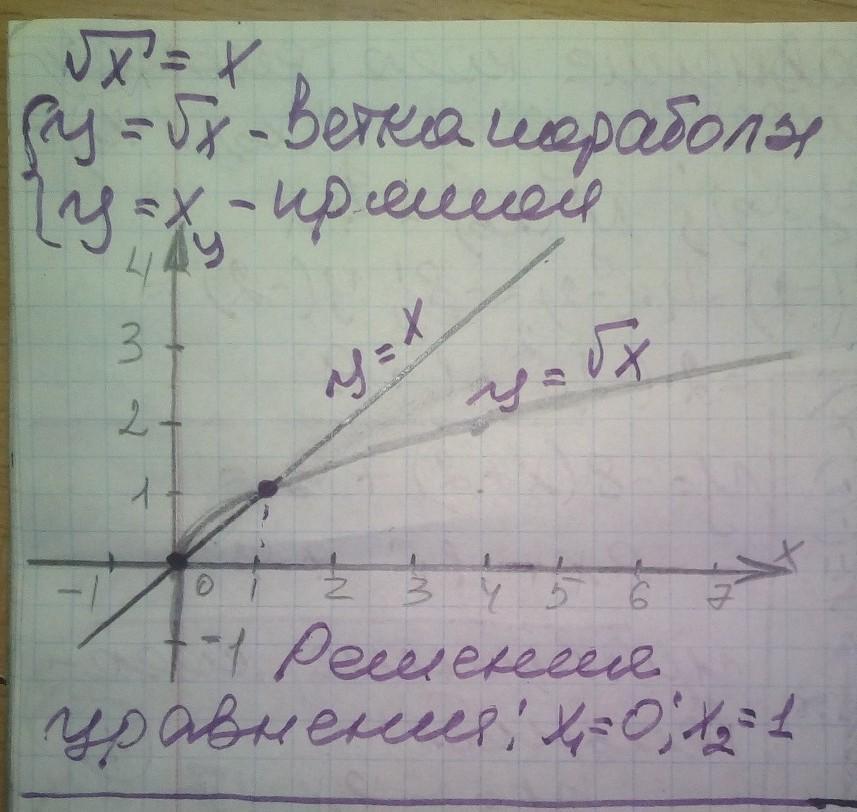 √x = x
{ y = √x - ветка параболы
{ y = x - прямая
y
4
3
2
1
y = x
y = √x
-1 0 1 2 3 4 5 6 7 x
-1
Решения
уравнения: x₁=0; x₂=1